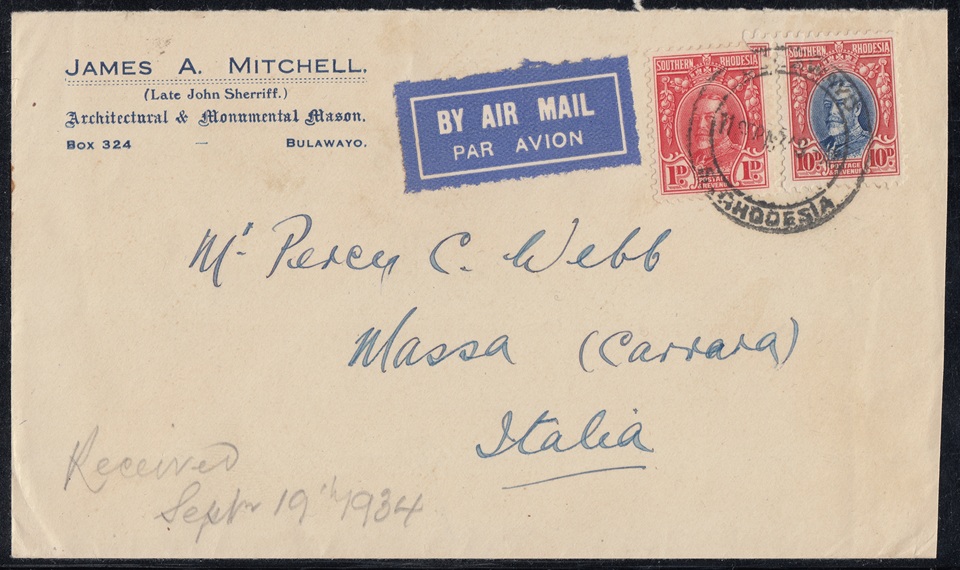 JAMES A. MITCHELL.
(Late John Sherriff.)
Architectural & Monumental Mason.
BOX 324 — BULAWAYO.
BY AIR MAIL
PAR AVION
SOUTHERN RHODESIA
1D 1D
POSTAGE & REVENUE
SOUTHERN RHODESIA
10D 10D
POSTAGE & REVENUE
RHODESIA
Mr Percy C. Webb
Massa (Carrara)
Italia
Received
Septr 19th 1934